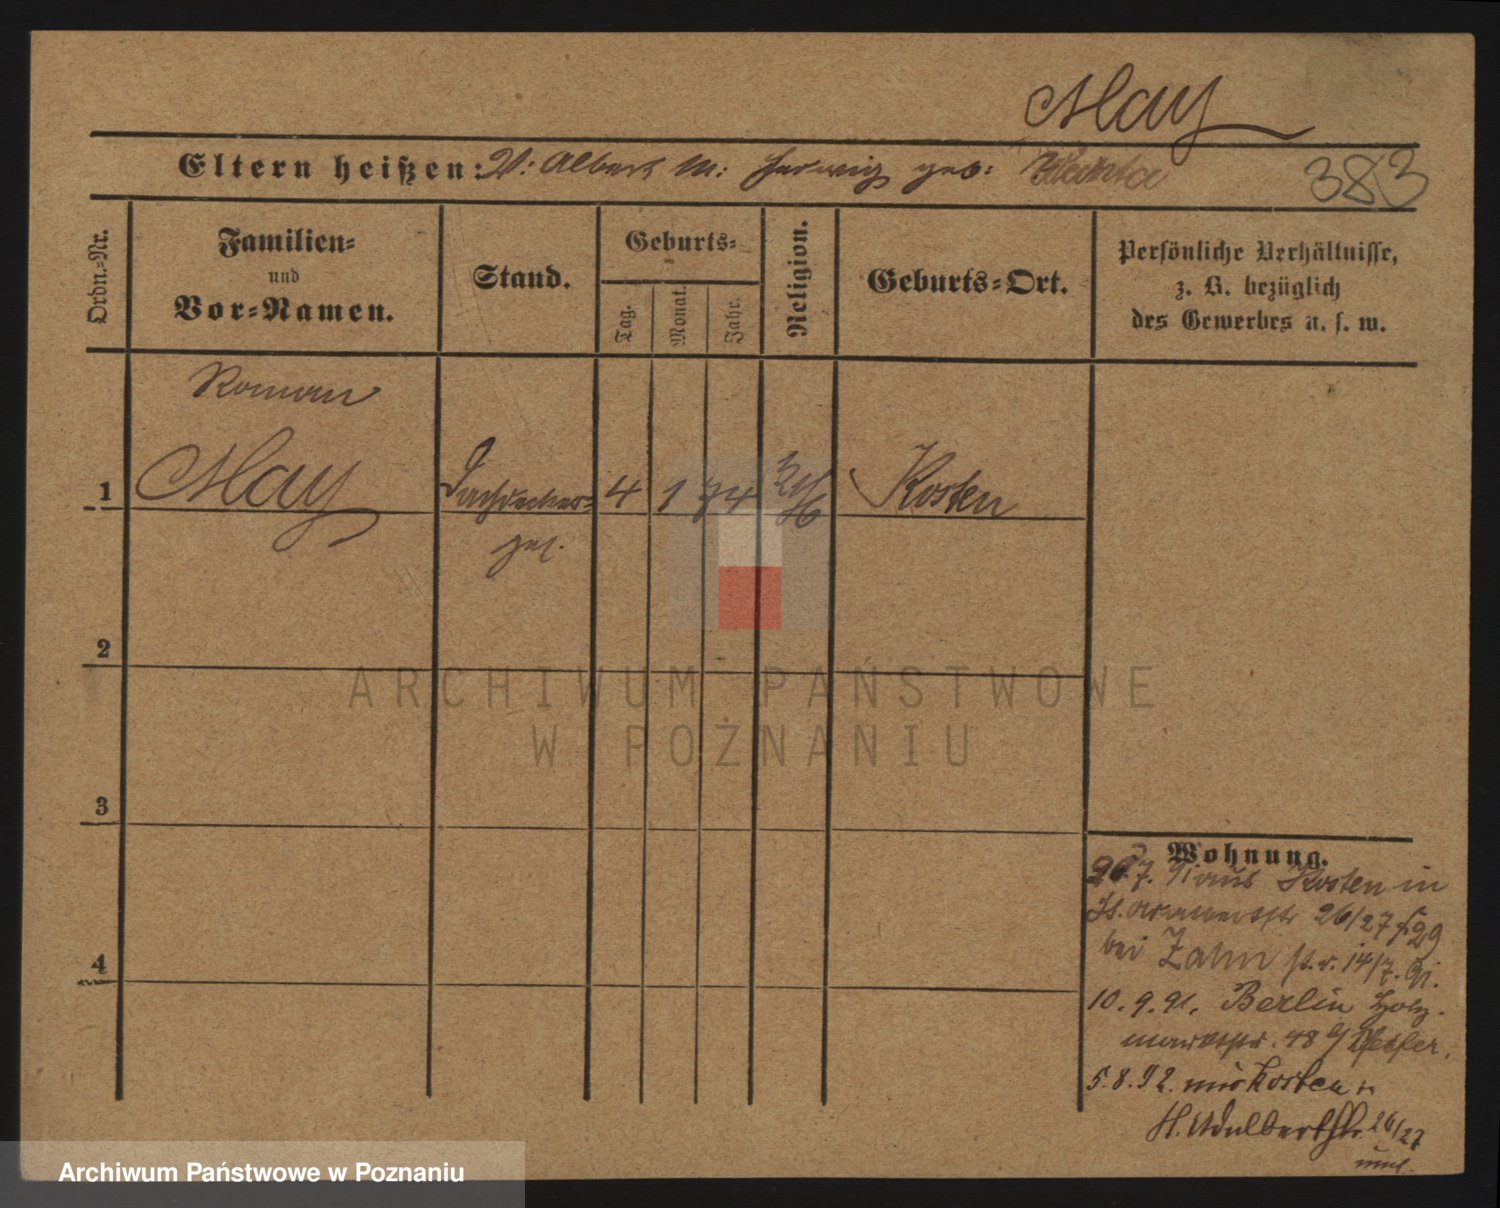 May
Eltern heißen: V: Albert M: Hedwig geb:
383
Ordn.-Nr.
Familien-
und
Vor-Namen.
Stand.
Geburts-
Tag.
Monat.
Jahr.
Religion.
Geburts-Ort.
Persönliche Verhältnisse,
z. B. bezüglich
des Gewerbes u. s. w.
Roman
1 May Dachdecker- 4 1 74 Kosten
ges.
2
3
4
Wohnung.
20.7. 91 aus Kosten in
26/27
bei Zahn 14/7. 91.
10. 9. 91. Berlin Holz-
marktstr. 48
5. 8. 92. aus Kosten
St. Adalbertstr. 26/27
ARCHIWUM PAŃSTWOWE
W POZNANIU
Archiwum Państwowe w Poznaniu